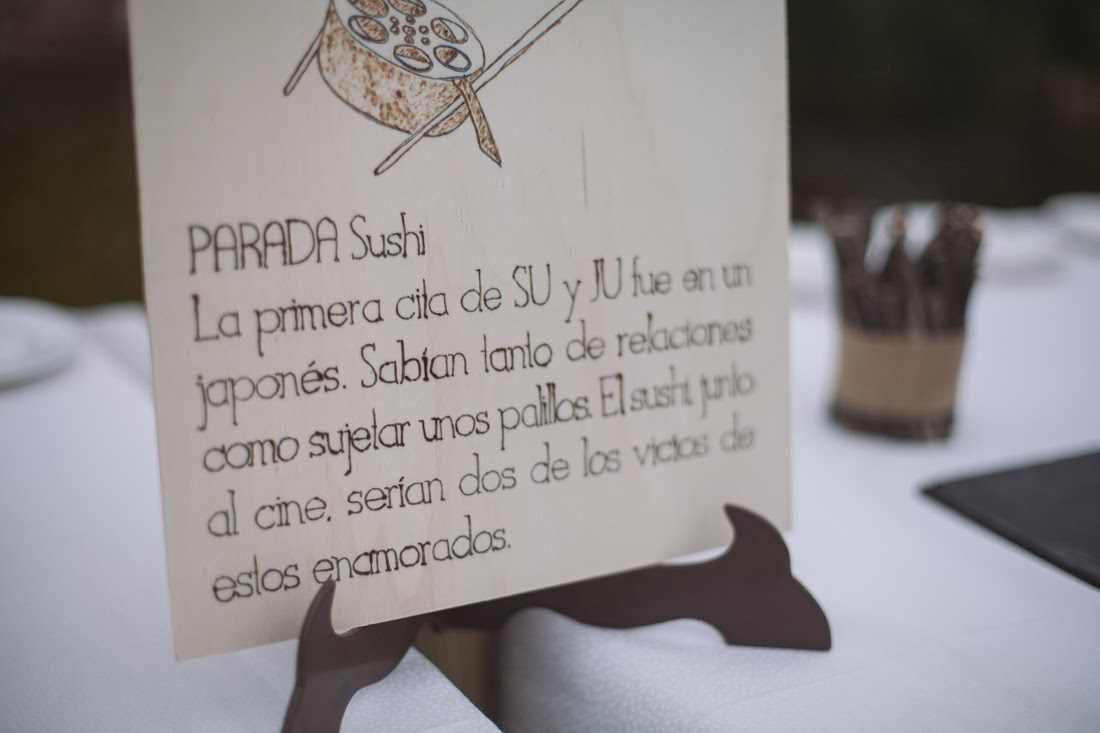 PARADA Sushi
La primera cita de SU y JU fue en un
japonés. Sabían tanto de relaciones
como sujetar unos palillos. El sushi, junto
al cine, serían dos de los vicios de
estos enamorados.